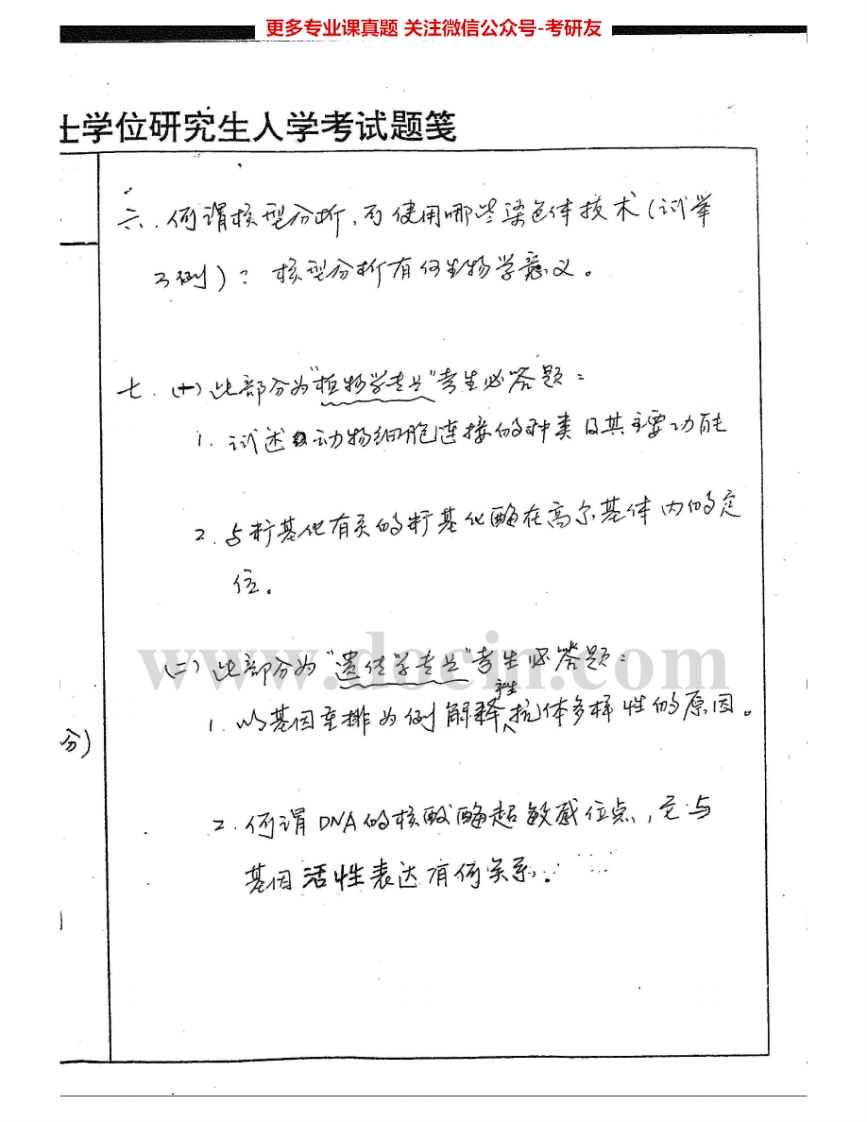 更多专业课真题 关注微信公众号-考研友
士学位研究生入学考试题笺
六. 何谓核型分析,可使用哪些染色体技术(试举
3例)? 核型分析有何生物学意义。
七. (一) 此部分为"植物学专业"考生必答题:
1. 试述动物细胞连接的种类及其主要功能
2. 与糖基化有关的糖基化酶在高尔基体内的定
位。
www.docin.com
(二) 此部分为"遗传学专业"考生必答题:
1. 以基因重排为例解释产生抗体多样性的原因。
分)
2. 何谓DNA的核酸酶超敏感位点,它与
基因活性表达有何关系.